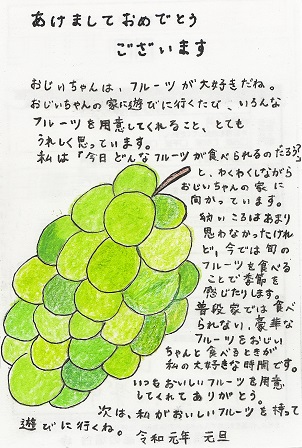 あけましておめでとう
ございます
おじいちゃんは、フルーツが大好きだね。
おじいちゃんの家に遊びに行くたび、いろんな
フルーツを用意してくれること、とても
うれしく思っています。
私は『今日どんなフルーツが食べられるのだろう？』
と、わくわくしながら
おじいちゃんの家に
向かっています。
幼いころはあまり
思わなかったけれ
ど、今では旬の
フルーツを食べる
ことで季節を
感じたりします。
普段家では食べ
られない、豪華な
フルーツをおじい
ちゃんと食べるときが
私の大好きな時間です。
いつもおいしいフルーツを用意
してくれてありがとう。
次は、私がおいしいフルーツを持って
遊びに行くね。 令和元年 元旦